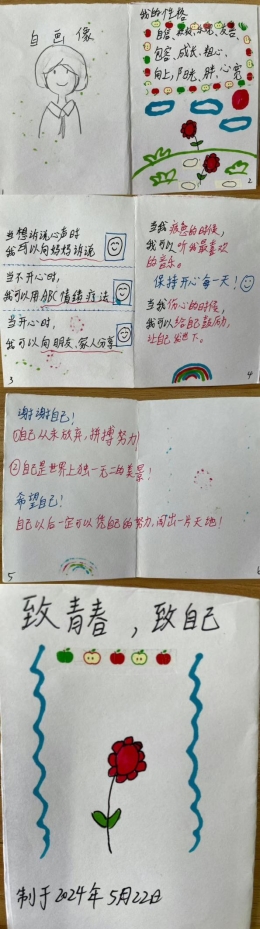 自画像
1
我的性格
自信、乐观、友善
包容、成长、粗心、
向上、阳光、胖、心宽
2
当想诉说心声时
我可以向妈妈诉说
当不开心时,
我可以用ABC情绪疗法
当开心时,
我可以向朋友、家人分享
3
当我疲惫的时候,
我可以听我最喜欢
的音乐。
保持开心每一天!
当我伤心的时候,
我可以给自己鼓励,
让自己下。
4
谢谢自己!
①自己从未放弃,拼搏努力!
②自己是世界上独一无二的美景!
希望自己!
自己以后一定可以凭自己的努力,闯出一片天地!
5
6
致青春,致自己
制于2024年5月22日